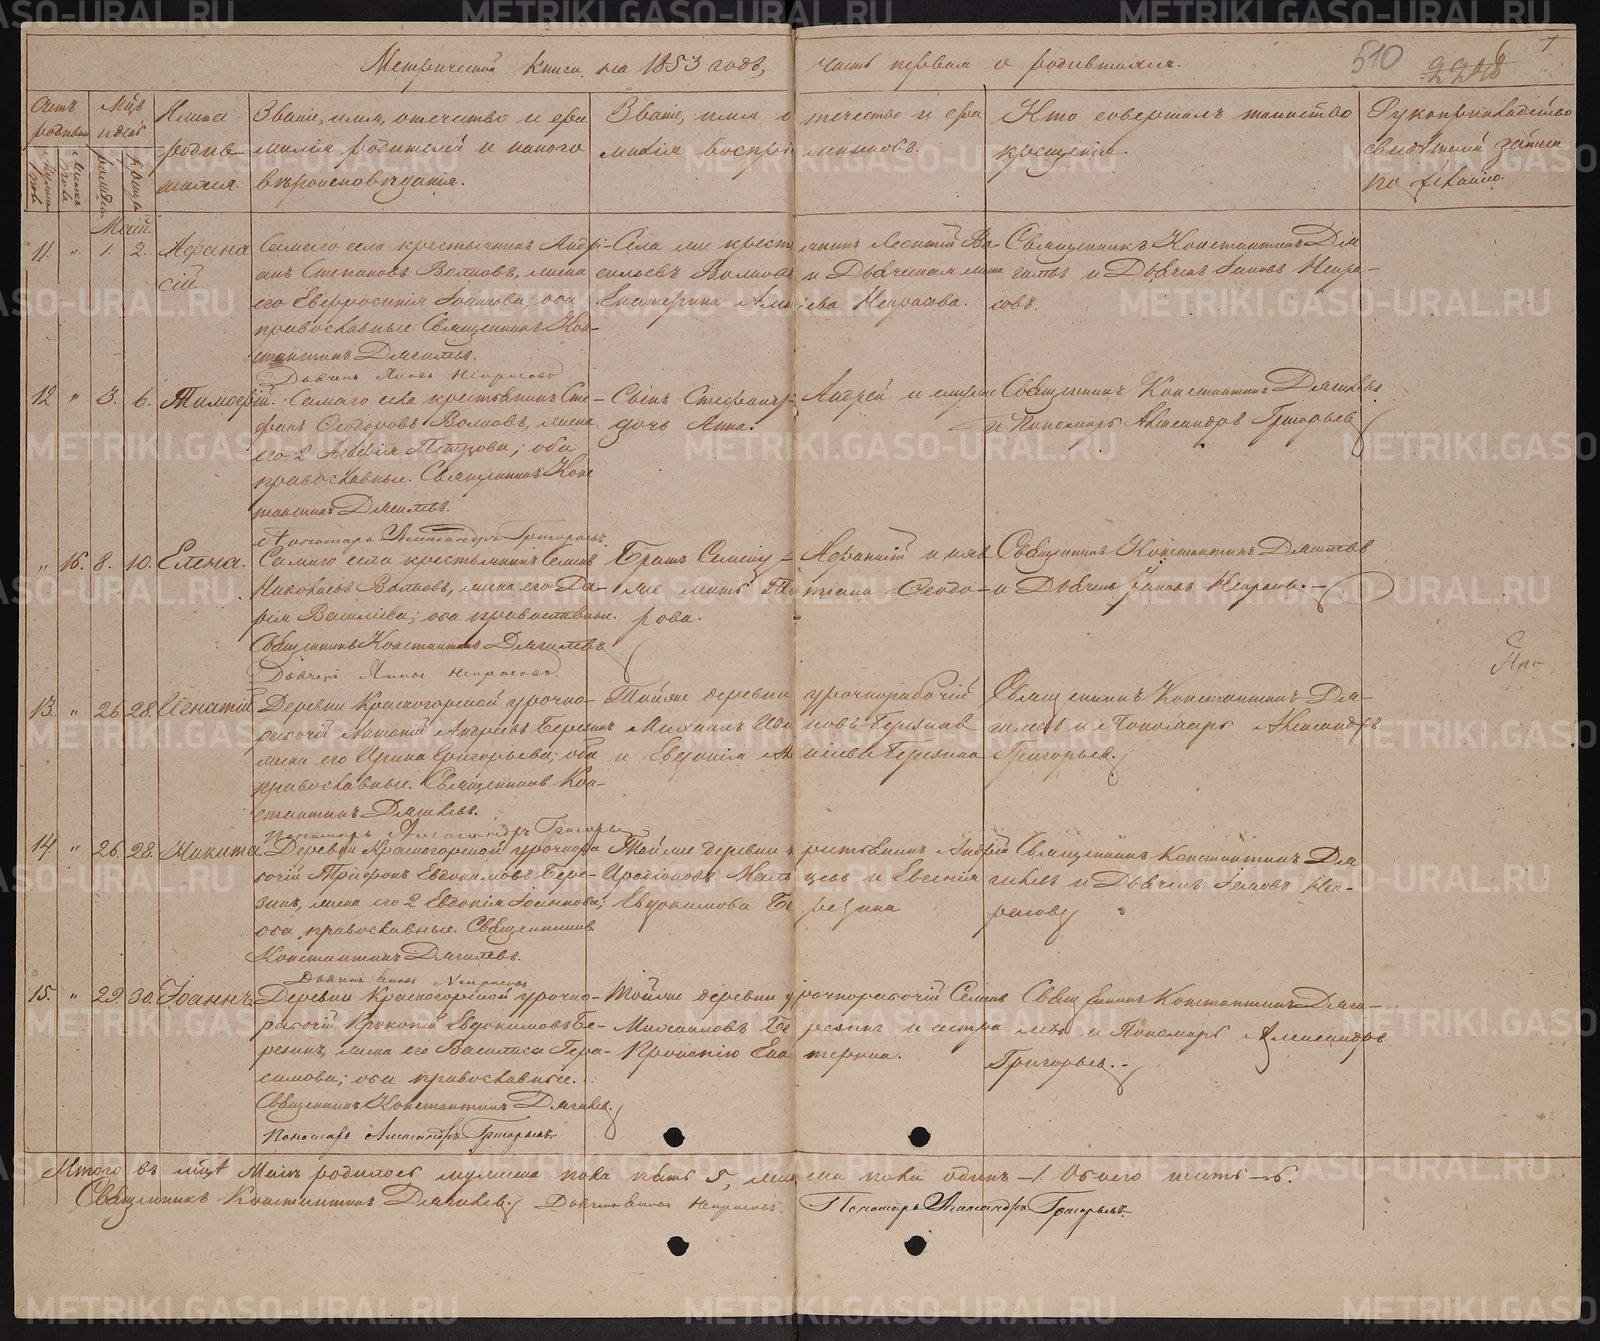 Метрической книги на 1853 годъ, часть первая о родившихся.
510
Счетъ родившихся
Мцъ и день
Имена родившихся.
Званіе, имя, отечество и фамилія родителей и какого вѣроисповѣданія.
Званіе, имя, отечество и фамилія воспріемниковъ.
Кто совершалъ таинство крещенія.
Рукоприкладство свидѣтелей записи по желанію.
Май.
11. " 1. 2. Афанасій.
Самаго села крестьянинъ Андрі-
анъ Степановъ Волковъ, жена
его Евфросинія Іоаннова; оба
православные. Священникъ Кон-
стантинъ Дягилевъ.
Дьячекъ Яковъ Некрасовъ
Села же крестьянинъ Леонтій Ва-
сильевъ Волковъ и Дьячихи
Екатерина Некрасова.
Священникъ Константинъ Дя-
гилевъ и Дьячекъ Іаковъ Некра-
совъ.
12 " 3. 6. Тимофей.
Самаго села крестьянинъ Сте-
фанъ Ѳеодоровъ Волковъ, жена
его 2 Агафія Петрова; оба
православные. Священникъ Кон-
стантинъ Дягилевъ.
Пономарь Александръ Григорьевъ.
Сынъ Андрей и
дочь Анна.
Священникъ Константинъ Дягилевъ
и Пономарь Александръ Григорьевъ
" 16. 8. 10. Елена.
Самаго села крестьянинъ Семенъ
Николаевъ Волковъ, жена его Да-
рья Васильева; оба православные.
Священникъ Константинъ Дягилевъ
Дьячекъ Яковъ Некрасовъ.
Братъ Афанасій и
же мать Татіана Ѳеодо-
рова.
Священникъ Константинъ Дягилевъ
и Дьячекъ Іаковъ Некрасовъ.
При
13. " 26. 28. Игнатій
Деревни Красногорской урочно-
рабочій Андреевъ Березинъ
жена его Ирина Григорьева; оба
православные. Священникъ Кон-
стантинъ Дягилевъ.
Пономарь Александръ Григорьевъ
Тойже деревни урочнорабочій
Михаилъ Ивановъ Березинъ
и Евдокія Березина
Священникъ Константинъ Дя-
гилевъ и Пономарь Александръ
Григорьевъ.
14. " 26. 28. Никита
Деревни Красногорской урочнора-
бочій Трифонъ Евдокимовъ Бере-
зинъ, жена его 2 Евдокія Іоаннова;
оба православные. Священникъ
Константинъ Дягилевъ.
Дьячекъ Яковъ Некрасовъ
Тойже деревни крестьянинъ Андрей
и Евгенія
Евдокимова Березина
Священникъ Константинъ Дя-
гилевъ и Дьячекъ Іаковъ Нек-
расовъ
15. " 29. 30. Іоаннъ.
Деревни Красногорской урочно-
рабочій Прокопій Евдокимовъ Бе-
резинъ, жена его Василиса Гера-
симова; оба православные.
Священникъ Константинъ Дягилевъ.
Пономарь Александръ Григорьевъ.
Тойже деревни урочнорабочій Семенъ
Михаиловъ Березинъ и сестра
Прокопію Екатерина.
Священникъ Константинъ Дяги-
левъ и Пономарь Александръ
Григорьевъ.
Итого въ мцѣ Маѣ родилось мужеска пола пять 5, женска пола одинъ 1. Обоего шесть 6.
Священникъ Константинъ Дягилевъ. Дьячекъ Яковъ Некрасовъ. Пономарь Александръ Григорьевъ.
METRIKI.GASO-URAL.RU